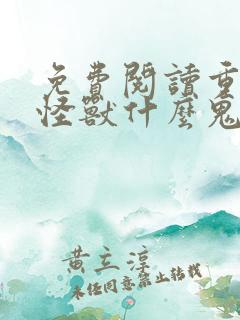 免費閱讀重
怪獸什麼鬼
黃立淳
未經同意禁止轉載